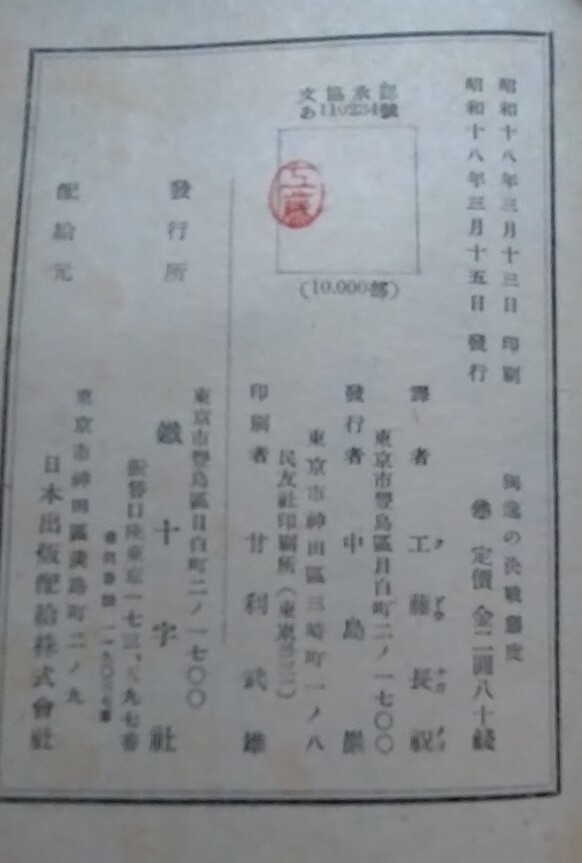 昭和十八年三月十三日 印刷
昭和十八年三月十五日 發行
獨逸の決戰態度
定價 金二圓八十錢
文協承認
あ110234號
工藤
(10.000部)
譯者 工藤長祝
東京市豐島區目白町二ノ一七〇〇
發行者 中島
東京市神田區三崎町一ノ八
民友社印刷所
印刷者 甘利武雄
發行所
東京市豐島區目白町二ノ一七〇〇
鐵十字社
振替口座東京一七三、八九七番
會員番號
配給元
東京市神田區淡路町二ノ九
日本出版配給株式會社